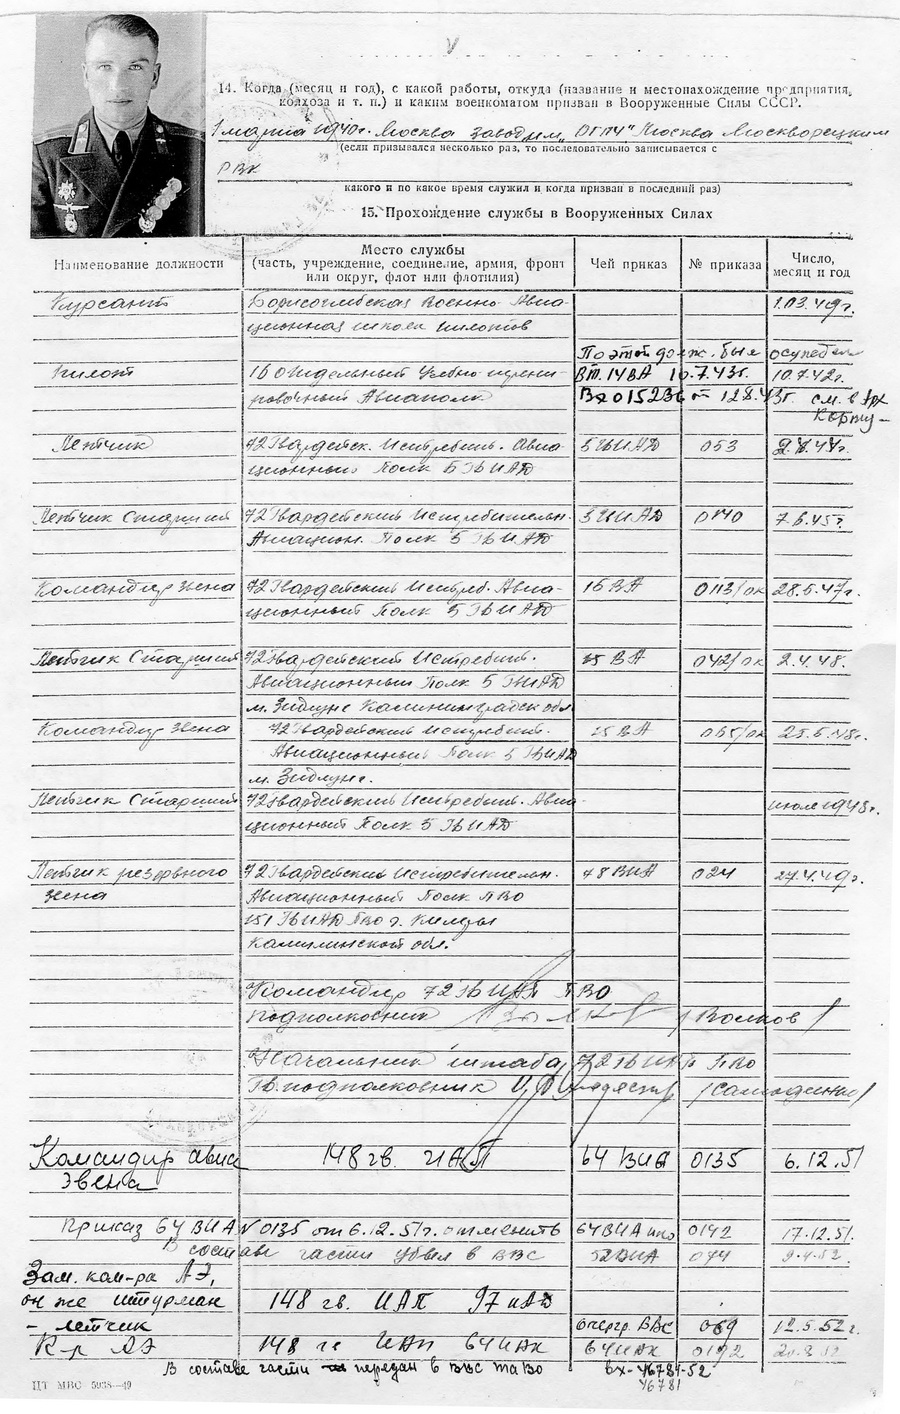 14. Когда (месяц и год), с какой работы, откуда (название и местонахождение предприятия,
колхоза и т. п.) и каким военкоматом призван в Вооруженные Силы СССР.
1 марта 1940г. Москва завод им. "ОГПУ" Москва Москворецким
(если призывался несколько раз, то последовательно записывается с
РВК
какого и по какое время служил и когда призван в последний раз)
15. Прохождение службы в Вооруженных Силах
Наименование должности
Место службы
(часть, учреждение, соединение, армия, фронт
или округ, флот или флотилия)
Чей приказ
№ приказа
Число,
месяц и год
Курсант Борисоглебская Военно Авиа-
ционная школа пилотов
По этой долж. был осужден
Пилот 16 отдельный Учебно-трени- ВТ. 14ВА 10.7.43г. 10.7.42г.
ровочный Авиаполк Вх 015236 от 12.8.43г. см. в арх
Летчик 72 Гвардейск. Истребит. Авиа- 5 ГвИАД 053
ционный Полк 5 ГвИАД
Летчик Старший 72 Гвардейский Истребительн. 5 ГвИАД 0140 7.6.45г.
Авиацион. Полк 5 ГвИАД
Командир звена 72 Гвардейский Истреб. Авиа- 15 ВА 0113/ок 28.5.47г.
ционный Полк 5 ГвИАД
Летчик Старший 72 Гвардейский Истребит. 15 ВА 042/ок 2.4.48.
Авиационный Полк 5 ГвИАД
Калининградск обл
Командир Звена 72 Гвардейский Истребит. 15 ВА
Авиационный Полк 5 ГвИАД
Летчик Старший 72 Гвардейский Истребит. Авиа- июле 1948г.
ционный Полк 5 ГвИАД
Летчик резервного 72 Гвардейский Истребительн. 78 ВИА 024 27.4.49г.
звена Авиационный Полк ПВО
ГвИАД ПВО г. Кимры
Калининской обл.
Командир 72 ГвИАП ПВО
подполковник /Волков/
Начальник штаба 72 ГвИАП ПВО
Гв. подполковник
Командир авиа 148 гв. ИАП 64 ВИА 0135 6.12.51
звена
Приказ 64 ВИА N 0135 от 6.12.51г. отменить 64 ВИА 0142 17.12.51.
В составе части убыл в ВВС 52ВИА 074 9.4.52
Зам. ком-ра АЭ,
он же штурман 148 гв. ИАП 97 иад
- летчик ВВС 069 12.5.52г.
К-р АЭ 148 гв ИАП 64 ИАК 64ИАК 0192
В составе части передан в ВВС ТаВО вх-46781-52
46781
ЦТ МВС 5938—49